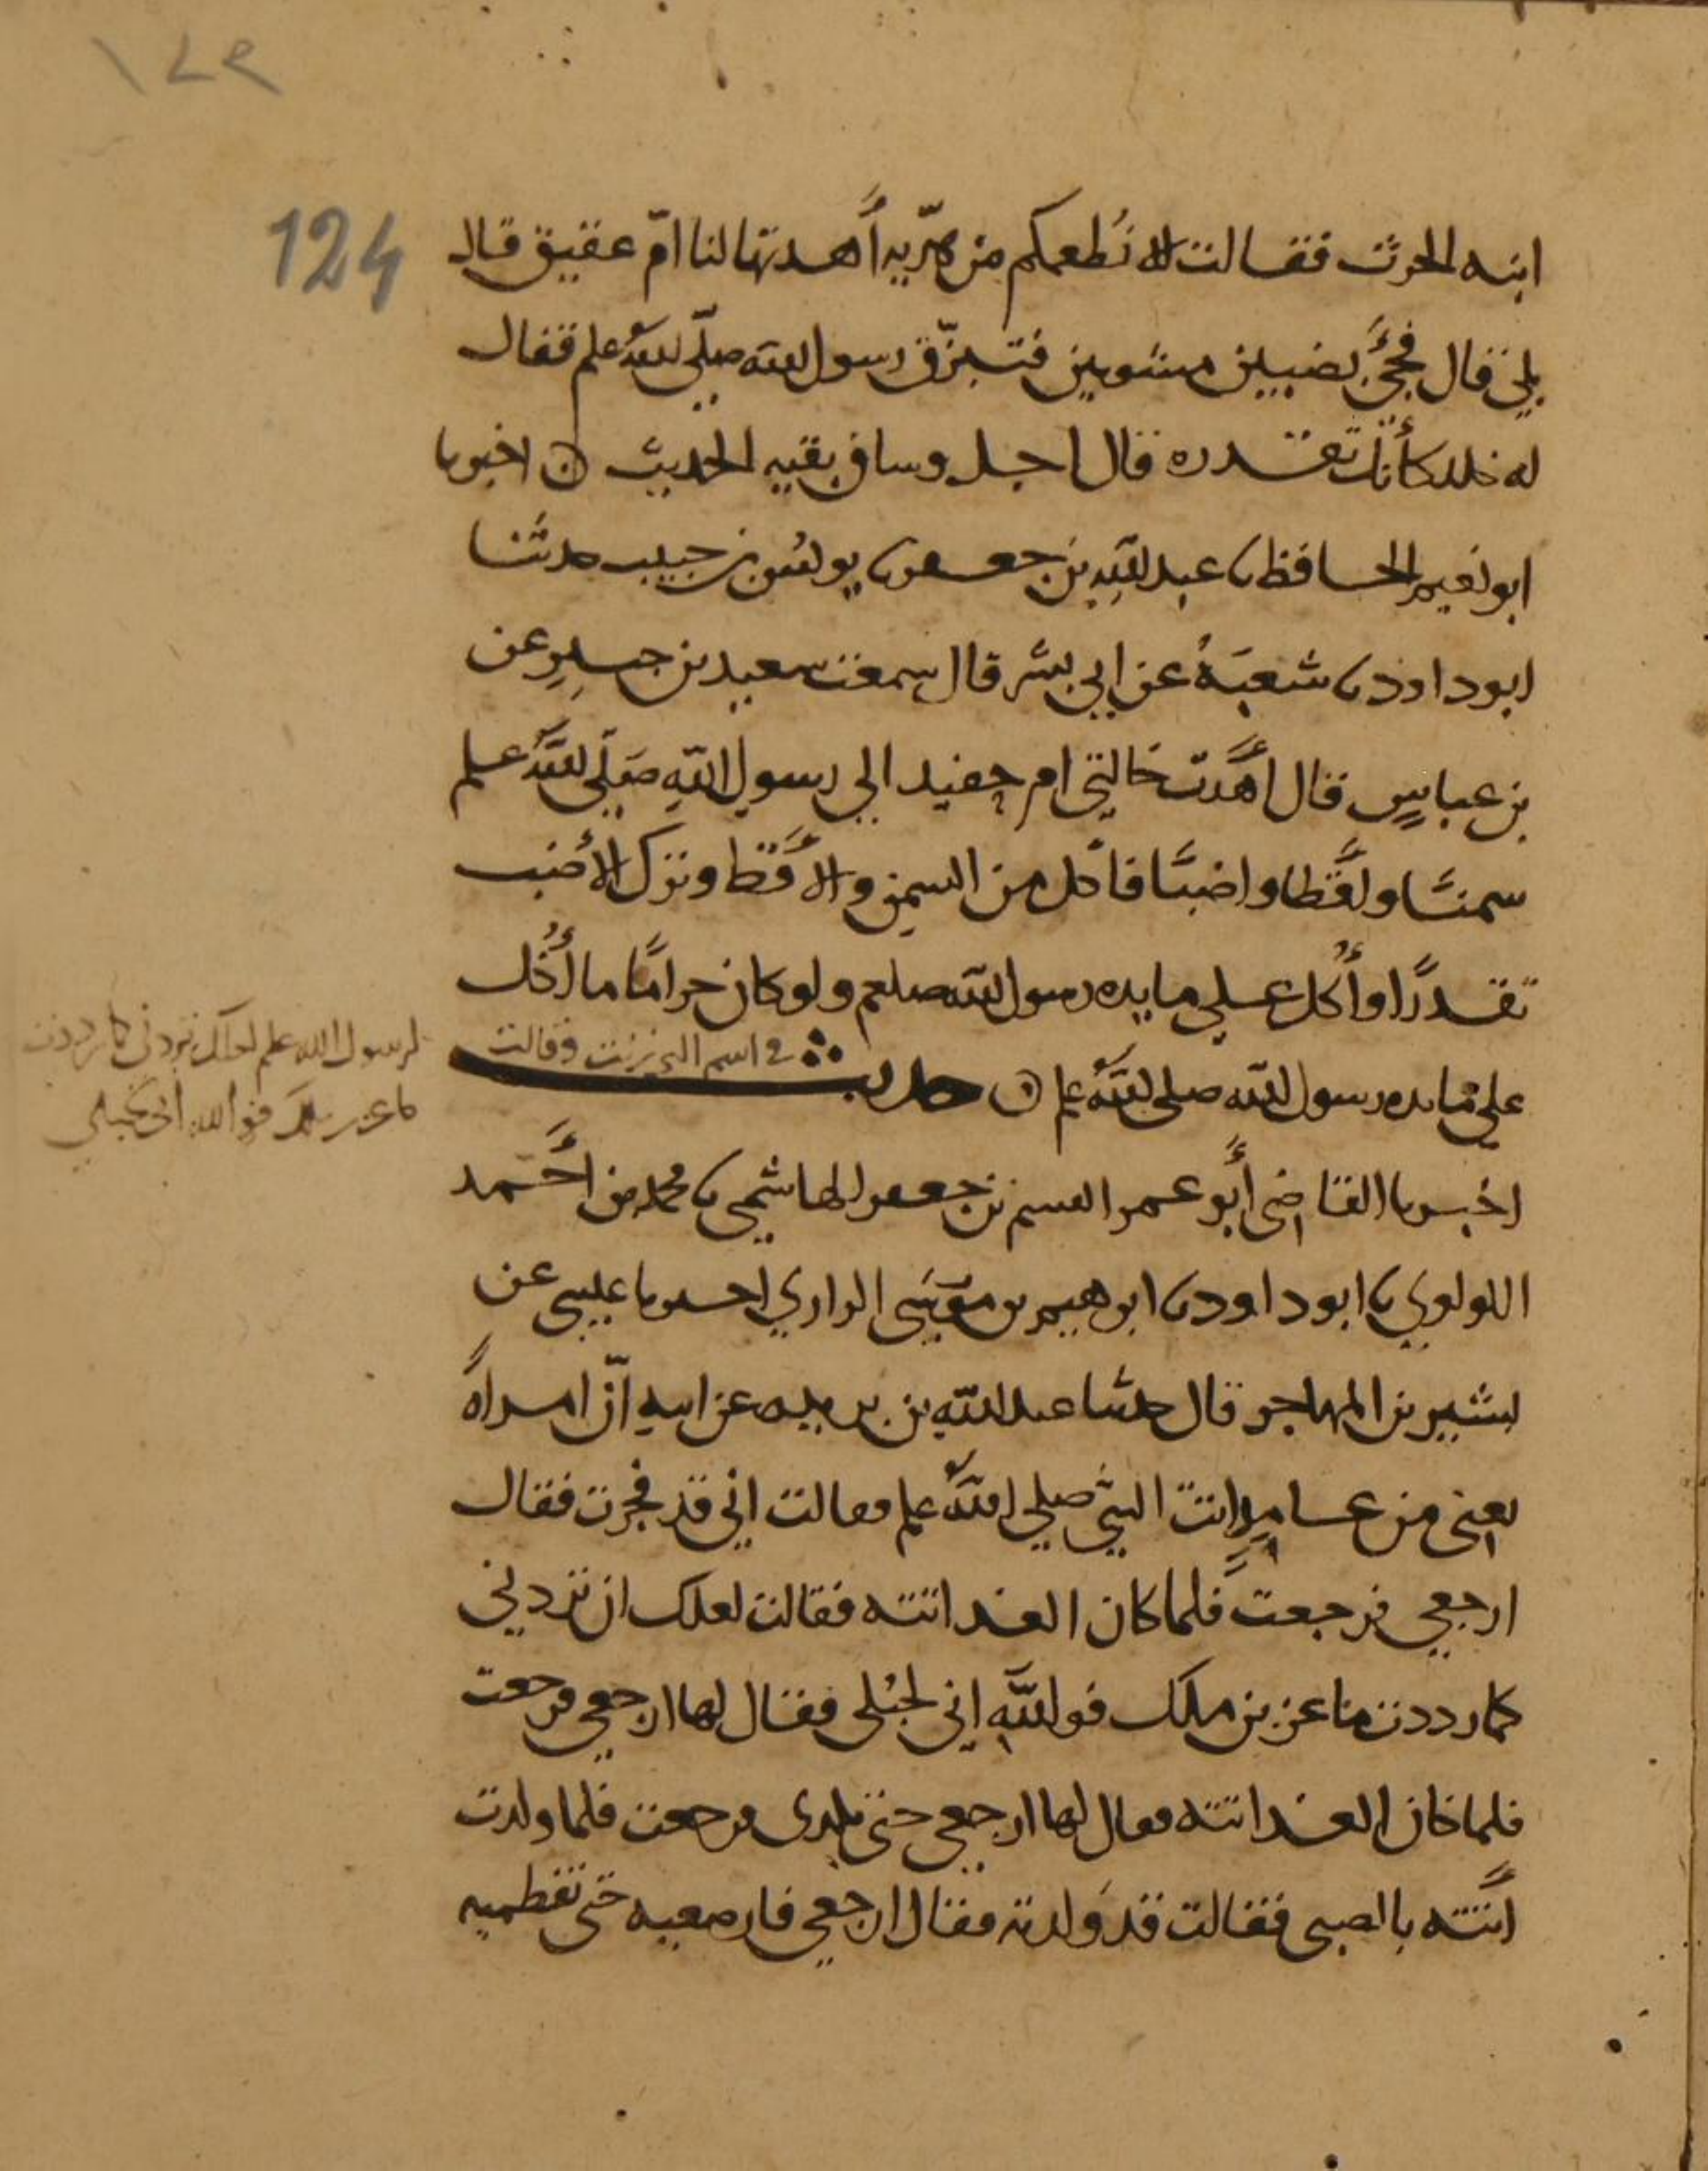 ١٢٤
124
ابنه الحرث فقالت الا نُطعمكم من هدّيه أهدتها لنا امّ عقيق قال
بلى قال فجئَ بضبيين مشويين فتبزّق رسول الله صلّى الله علم فقال
له خلد كأنك تقذره قال اجل وساق بقيه الحديث ۞ اخبرنا
ابو نعيم الحافظ نا عبد الله بن جعفر نا يونس بن حبيب حدثنا
ابو داود نا شعبهُ عن ابي بشر قال سمعت سعيد بن جبيرٍ عن
بن عباسٍ قال أهدت خالتي ام حفيد الي رسول الله صلّي الله علم
سمنًا واقطا واضبًا فاكل من السمن والأقط وترك الأضب
تقذرًا وأُكل علي مايده رسول الله صلعم ولو كان حرامًا ما أُكل
علي مايده رسول الله صلى الله علم ۞ حديث في اسم التي زنت وقالت
لرسول الله علم لعلك تردني كما رددت
ماعز بن ملك فو الله اني لحبلي
اخبرنا القاضي أبو عمر القسم بن جعفر الهاشمي نا محمد بن أحمد
اللولوي نا ابو داود نا ابرهيم بن موسَى الرازي اخبرنا عيسى عن
بشير بن المهاجر قال حدثنا عبد الله بن بريده عن ابيه انّ امراةً
يعني من غامدٍ اتت النبي صلي الله علم فقالت اني قد فجرت فقال
ارجعي فرجعت فلما كان الغد اتته فقالت لعلك ان تردني
كما رددت ماعز بن ملك فو اللهِ اني لحبُلى فقال لها ارجعي فرجعت
فلما كان الغد اتته فقال لها ارجعي حتى تلدي فرجعت فلما ولدت
اتته بالصبى فقالت قد ولدته فقال ارجعي فارضعيه حتى تفطميه